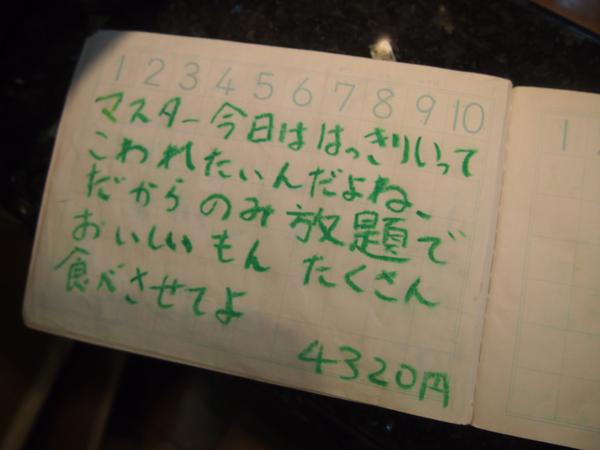 1 2 3 4 5 6 7 8 9 10
マスター今日ははっきりいって
こわれたいんだよね、
だからのみ放題で
おいしいもん たくさん
食べさせてよ
4320円
1